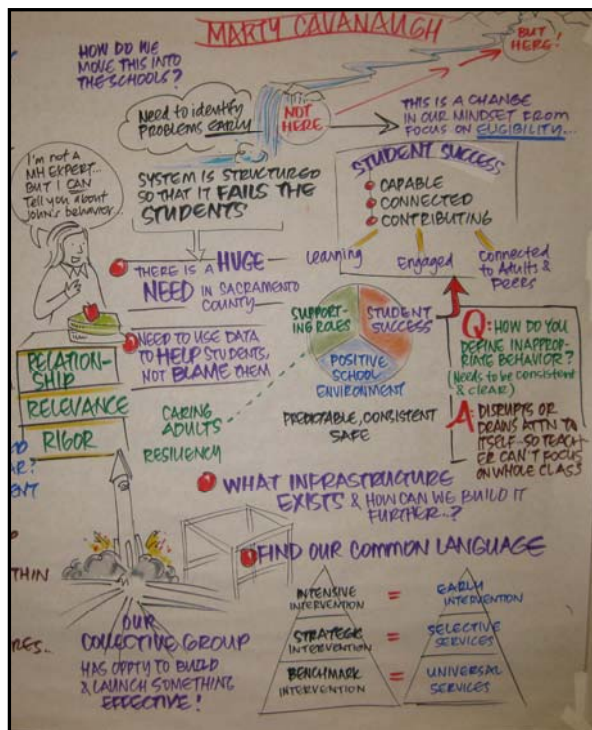 MARTY CAVANAUGH
BUT
HERE!
HOW DO WE
MOVE THIS INTO
THE SCHOOLS?
Need to identify
PROBLEMS EARLY
NOT
HERE
THIS IS A CHANGE
IN OUR MINDSET FROM
FOCUS ON ELIGIBILITY...
I'm not a
MH EXPERT...
BUT I CAN
Tell you about
John's behavior...
SYSTEM IS STRUCTURED
SO THAT IT FAILS THE
STUDENTS
STUDENT SUCCESS
CAPABLE
CONNECTED
CONTRIBUTING
Learning
Engaged
Connected
to Adults &
Peers
THERE IS A HUGE
NEED IN SACRAMENTO
COUNTY
NEED TO USE DATA
TO HELP STUDENTS,
NOT BLAME THEM
RELATION-
SHIP
RELEVANCE
RIGOR
SUPPORT-
ING ROLES
STUDENT
SUCCESS
POSITIVE
SCHOOL
ENVIRONMENT
CARING
ADULTS
RESILIENCY
PREDICTABLE, CONSISTENT
SAFE
Q: HOW DO YOU
DEFINE INAPPROP-
RIATE BEHAVIOR?
(Needs to be consistent
& CLEAR)
A: DISRUPTS OR
DRAWS ATTN TO
ITSELF-SO TEACH
ER CAN'T FOCUS
ON WHOLE CLASS
WHAT INFRASTRUCTURE
EXISTS & HOW CAN WE BUILD IT
FURTHER..?
FIND OUR COMMON LANGUAGE
INTENSIVE
INTERVENTION
=
EARLY
INTERVENTION
STRATEGIC
INTERVENTION
=
SELECTIVE
SERVICES
BENCHMARK
INTERVENTION
=
UNIVERSAL
SERVICES
OUR
COLLECTIVE GROUP
HAS OPPTY TO BUILD
& LAUNCH SOMETHING
EFFECTIVE!